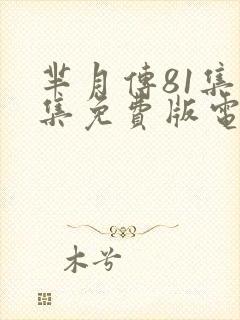 芈月傳81集
集免費版電
木兮